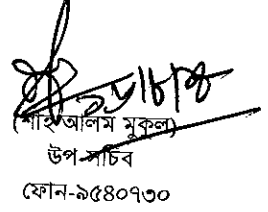 (শাহ আলম মুকুল)
উপ-সচিব
ফোন-৯৫৪০৭৩০